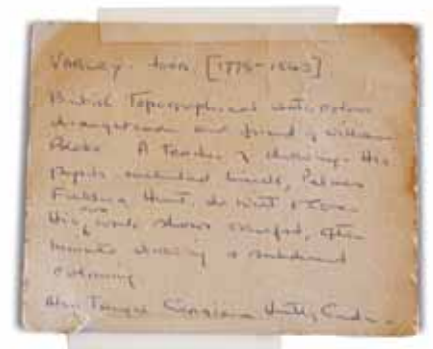 VARLEY. John [1778-1842]
British Topographical watercolour
draughtsman and friend of William
Blake. A Teacher of drawing. His
pupils included Linnell, Palmer
Fielding Hunt, de Wint &
His own work shows simplified, often
drawing & subdued
colouring.
Also Taught Huntly